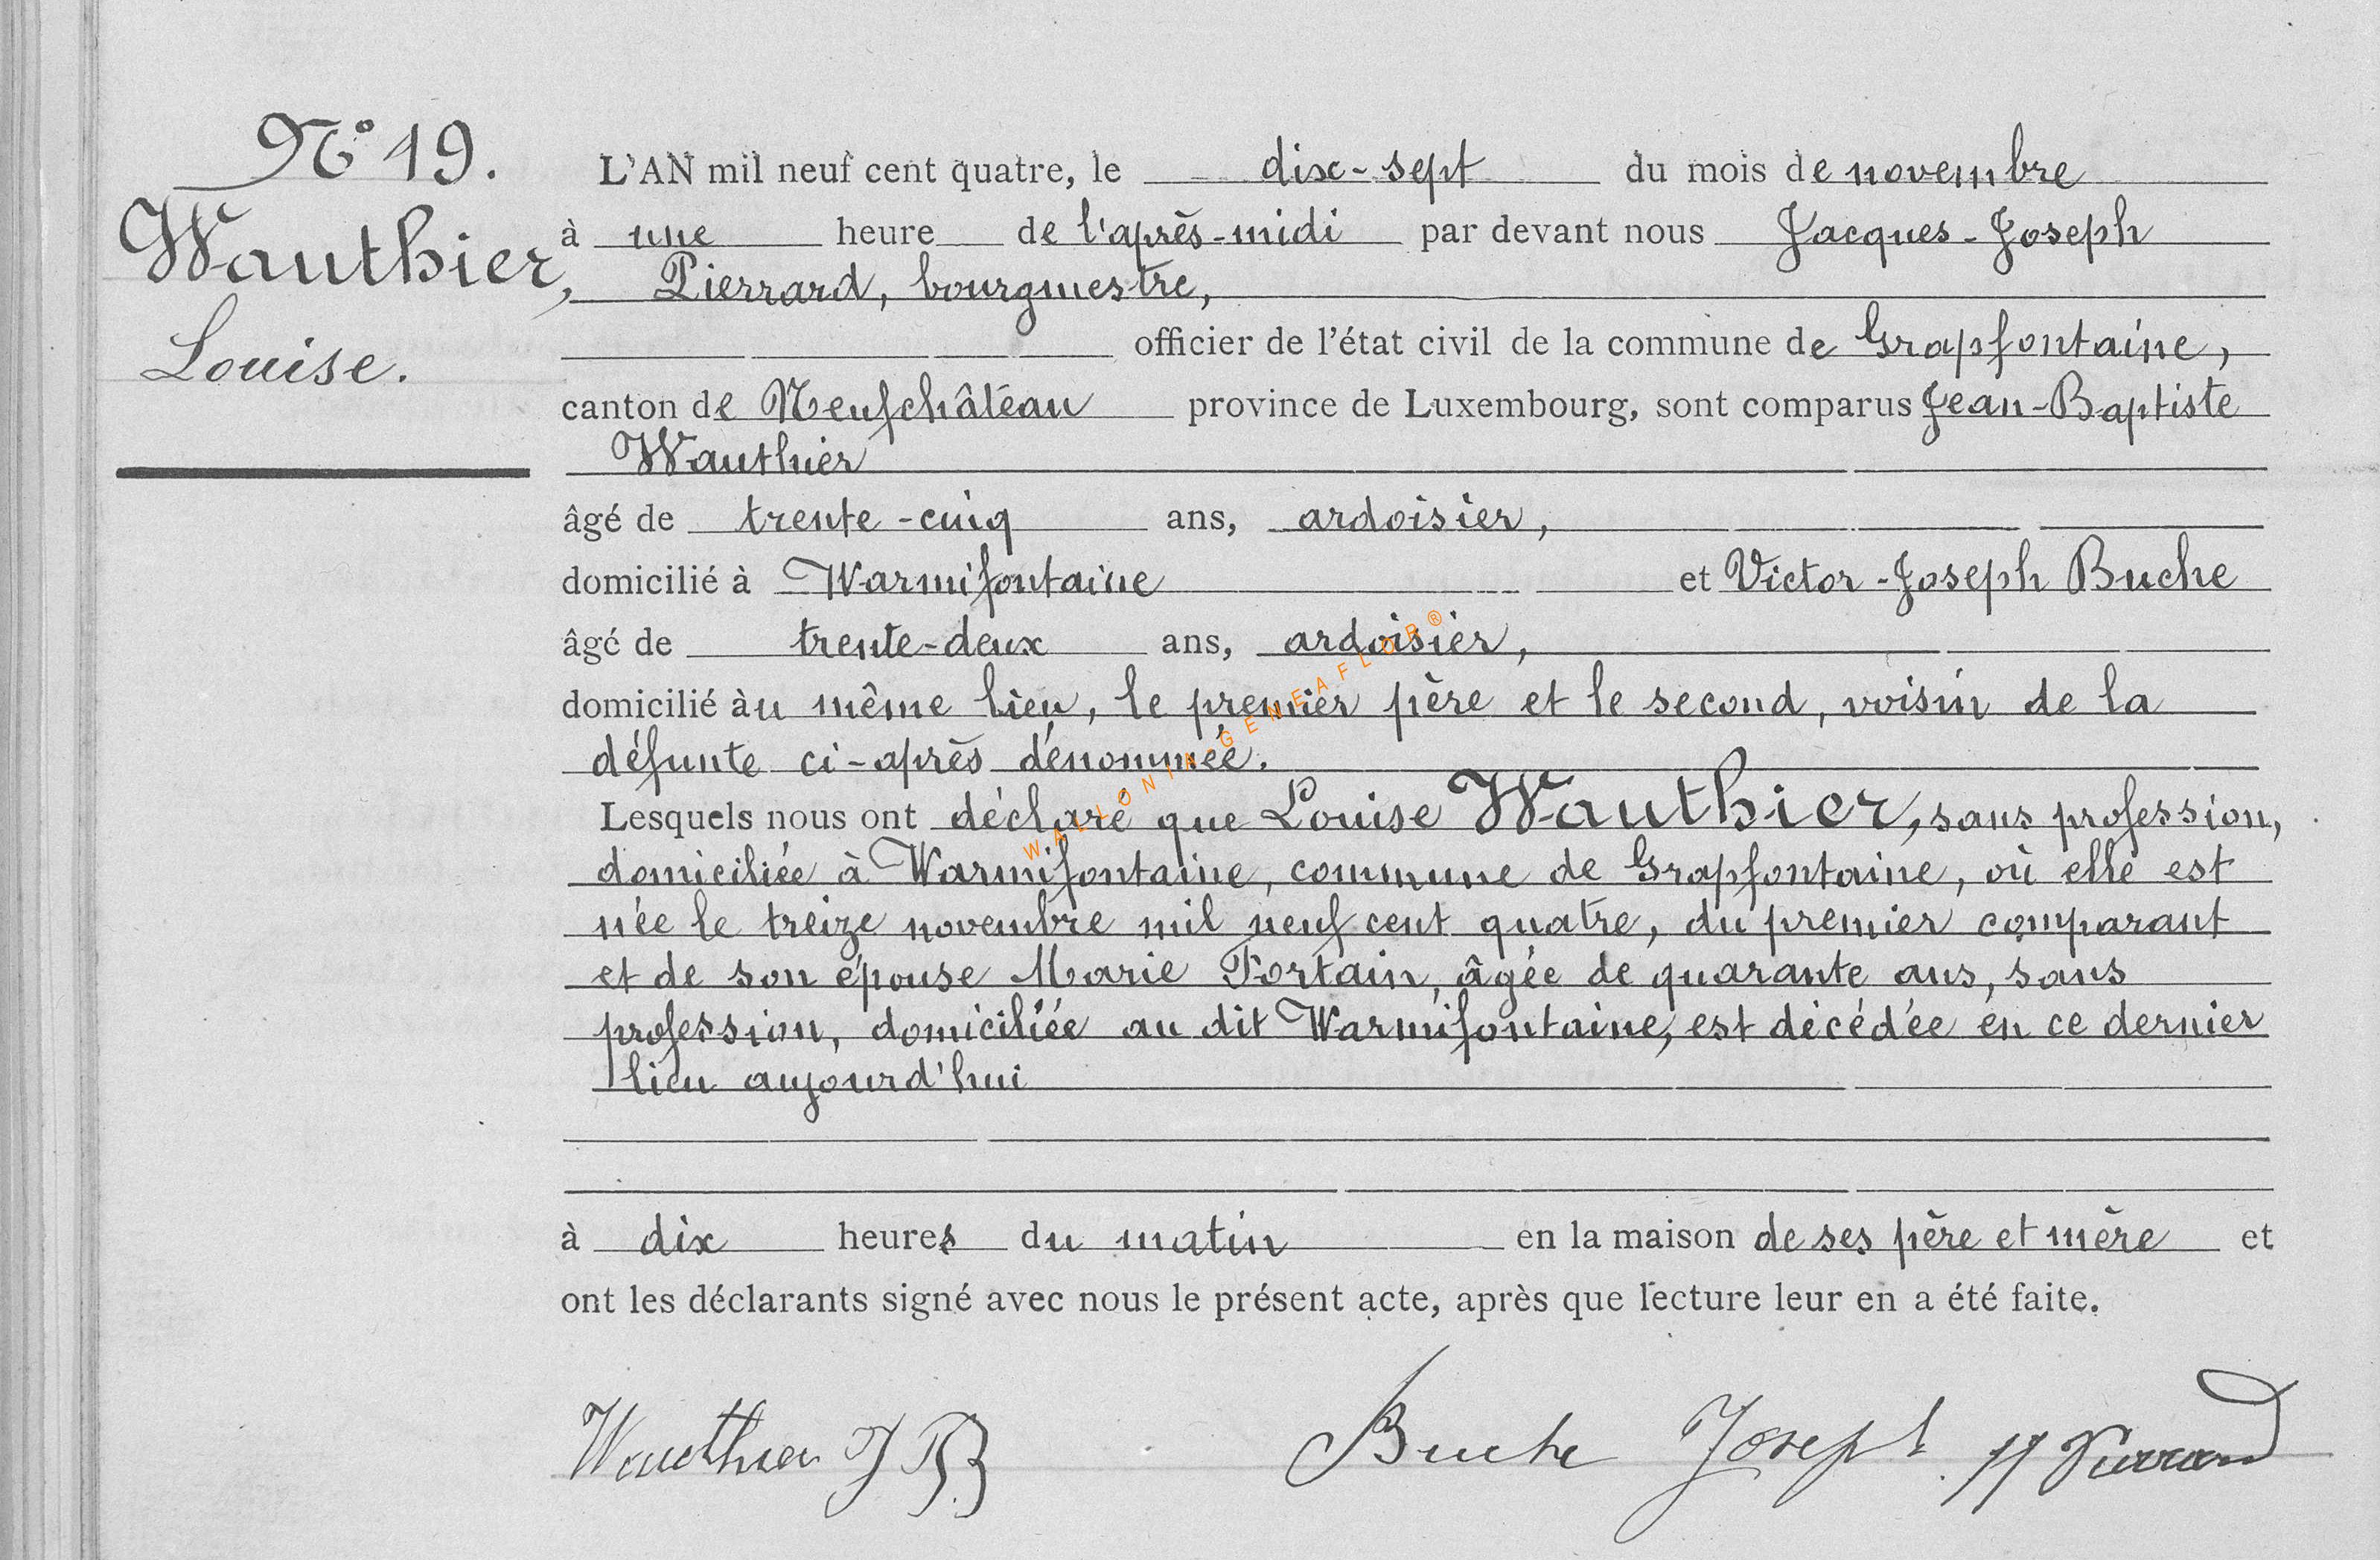 N° 19.
Wauthier,
Louise.
L'AN mil neuf cent quatre, le dix-sept du mois de novembre
à une heure de l'après-midi par devant nous Jacques-Joseph
Pierrard, bourgmestre,
officier de l'état civil de la commune de Grapfontaine,
canton de Neufchâteau province de Luxembourg, sont comparus Jean-Baptiste
Wauthier
âgé de trente-cinq ans, ardoisier,
domicilié à Warmifontaine et Victor-Joseph Buche
âgé de trente-deux ans, ardoisier,
domicilié àu même lieu, le premier père et le second, voisin de la
défunte ci-après dénommée.
Lesquels nous ont déclaré que Louise Wauthier, sans profession,
domiciliée à Warmifontaine, commune de Grapfontaine, où elle est
née le treize novembre mil neuf cent quatre, du premier comparant
et de son épouse Marie Fortain, âgée de quarante ans, sans
profession, domiciliée au dit Warmifontaine, est décédée en ce dernier
lieu aujourd'hui
à dix heures du matin en la maison de ses père et mère et
ont les déclarants signé avec nous le présent acte, après que lecture leur en a été faite.
Wauthier J B Buche Joseph JJ Pierrard
WALLONIA-GENEAFLOR®